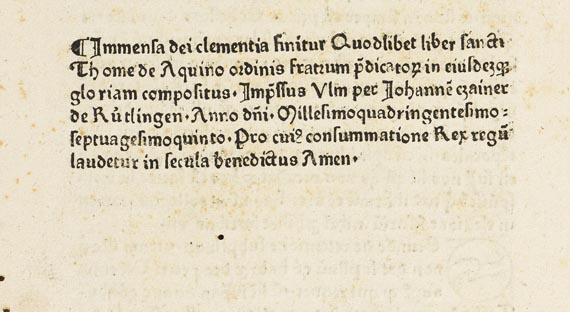 ¶Immensa dei clementia finitur Quodlibet liber sancti
Thome de Aquino ordinis fratrum p̄dicatoꝝ in eiusdēqꝫ
gloriam compositus · Imp̄ssus Vlm per Johannē czainer
de Rütlingen · Anno dn̄i · Millesimoquadringentesimo⸗
septuagesimoquinto · Pro cuiꝰ consummatione Rex regū
laudetur in secula benedictus Amen ·